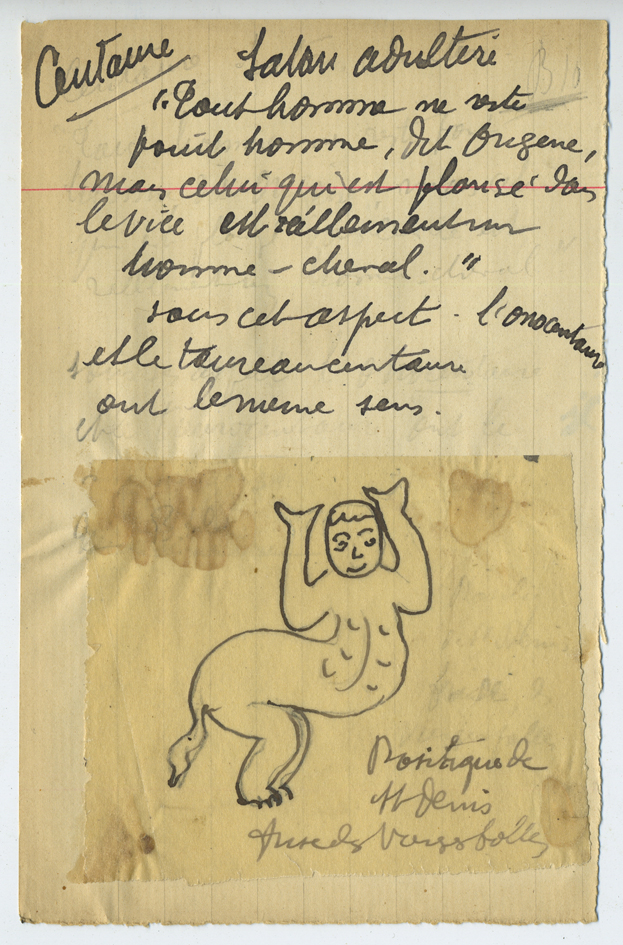 Centaure
Satan adultère
"Tout homme ne reste
point homme, dit Origene,
mais celui qui est plongé dans
le vice est réellement un
homme - cheval."
sous cet aspect. l'onocentaure
et le taureau centaure
ont le même sens.
Mosaïque de
St Denis